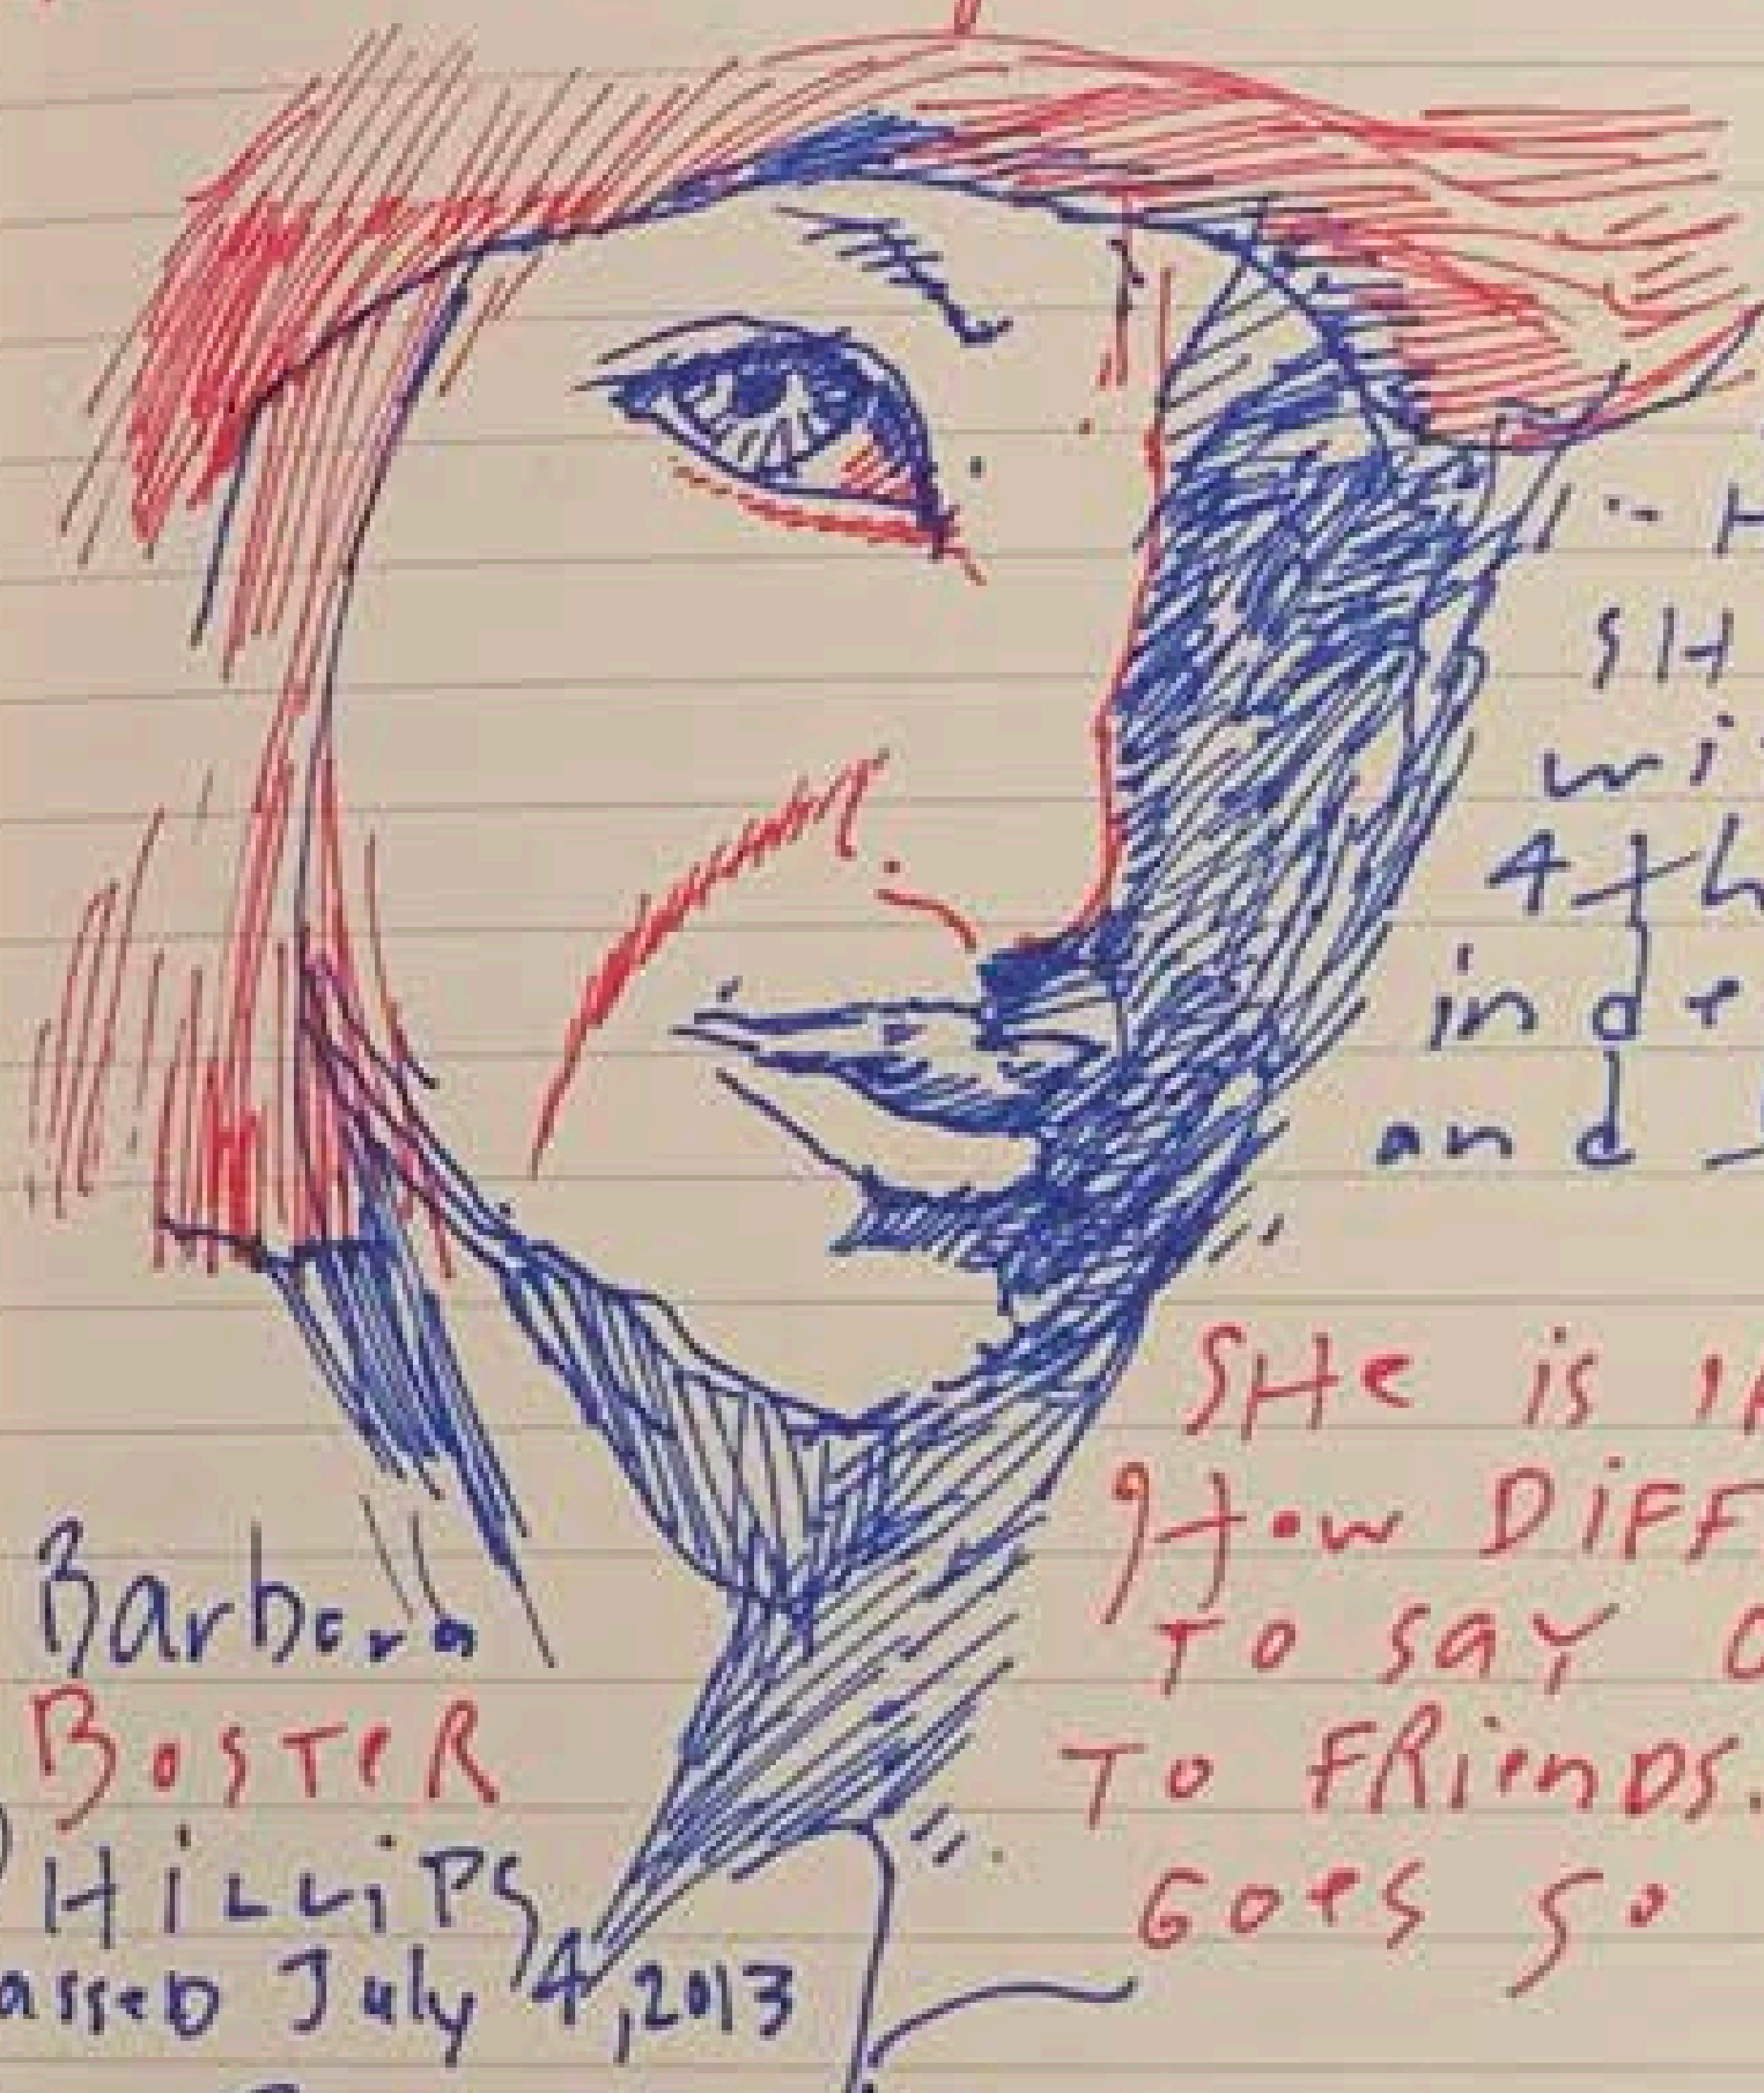 SH
wi
4th
inde
and
SHe is
How DiFF
To say
To FRienDs.
Goes so
Barbara
BosTeR
HiLLiPS
asseD July 4, 2013